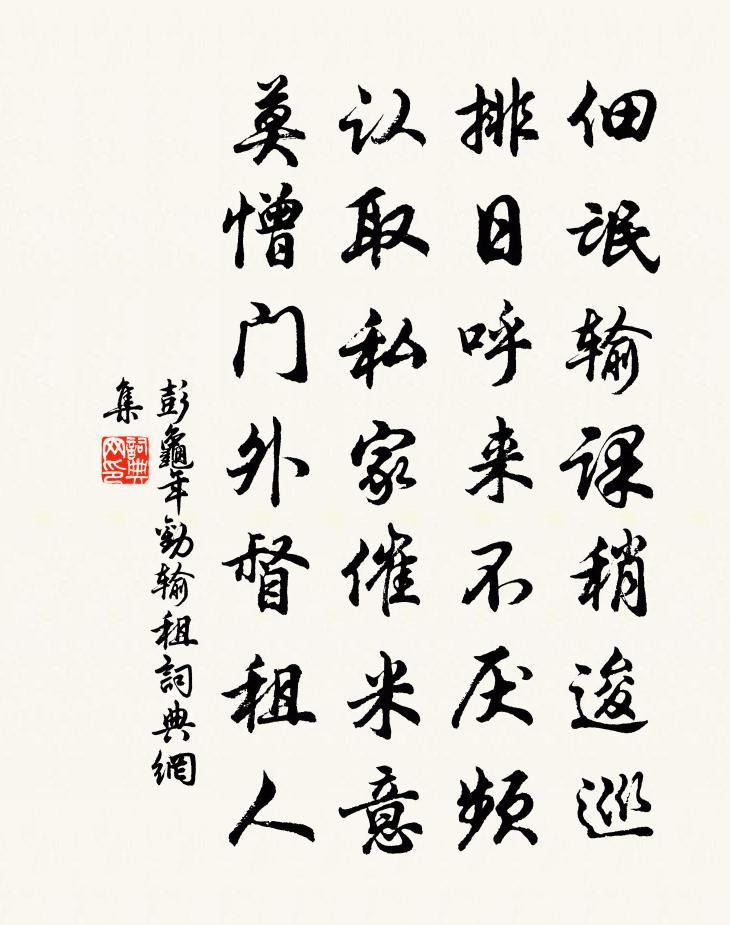 佃氓输课稍逡巡
排日呼来不厌频
认取私家催米意
莫憎门外督租人
彭龜年勸输租詞典網
集
詞典
网印